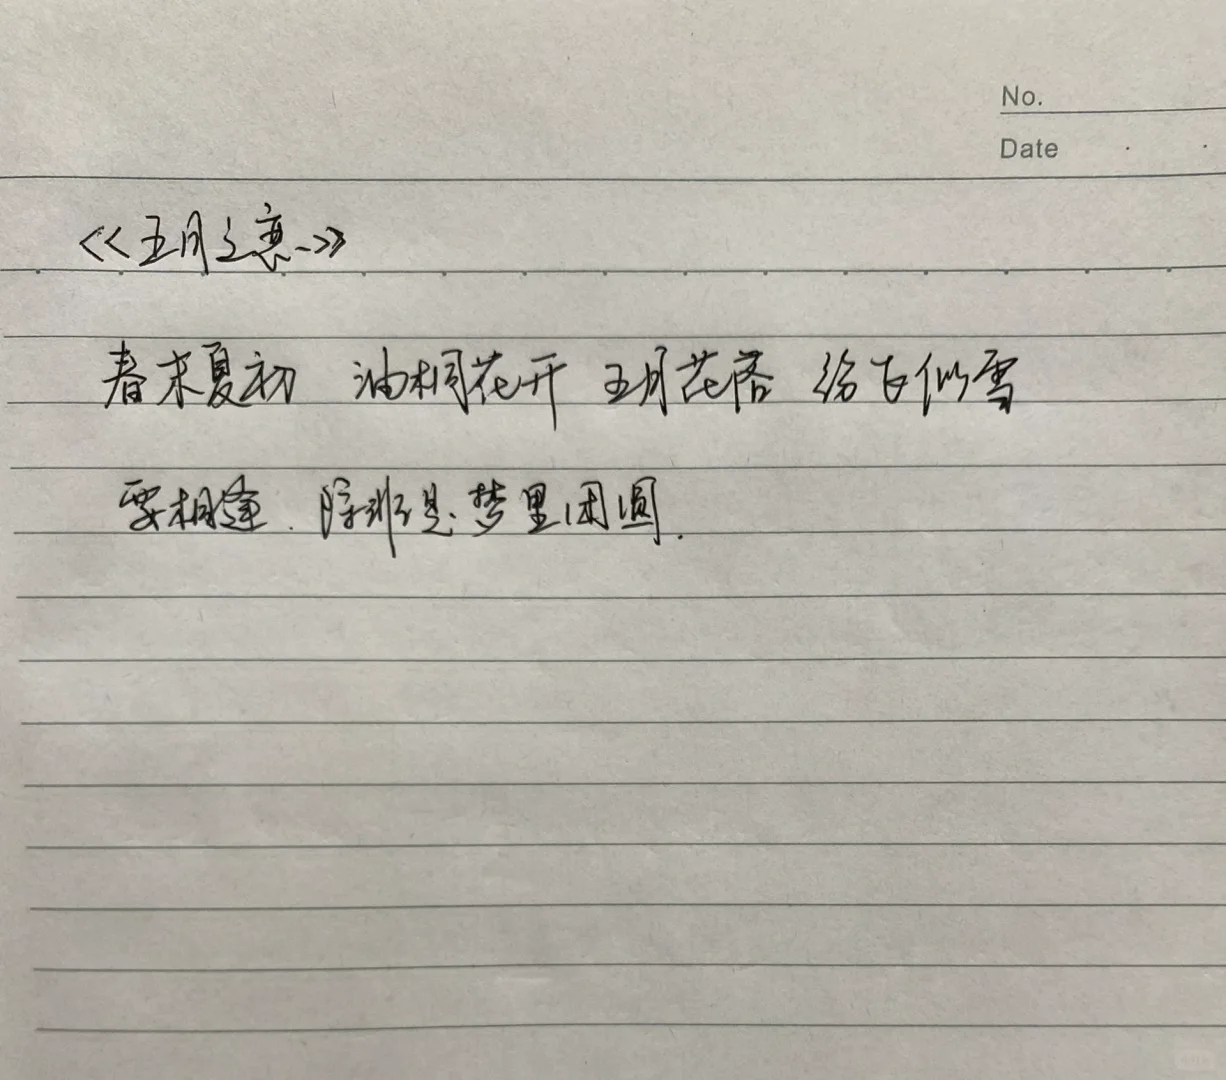 No.
Date
<<五月之恋>>
春末夏初 油桐花开 五月花落 纷飞似雪
要相逢. 除非是.梦里团圆.